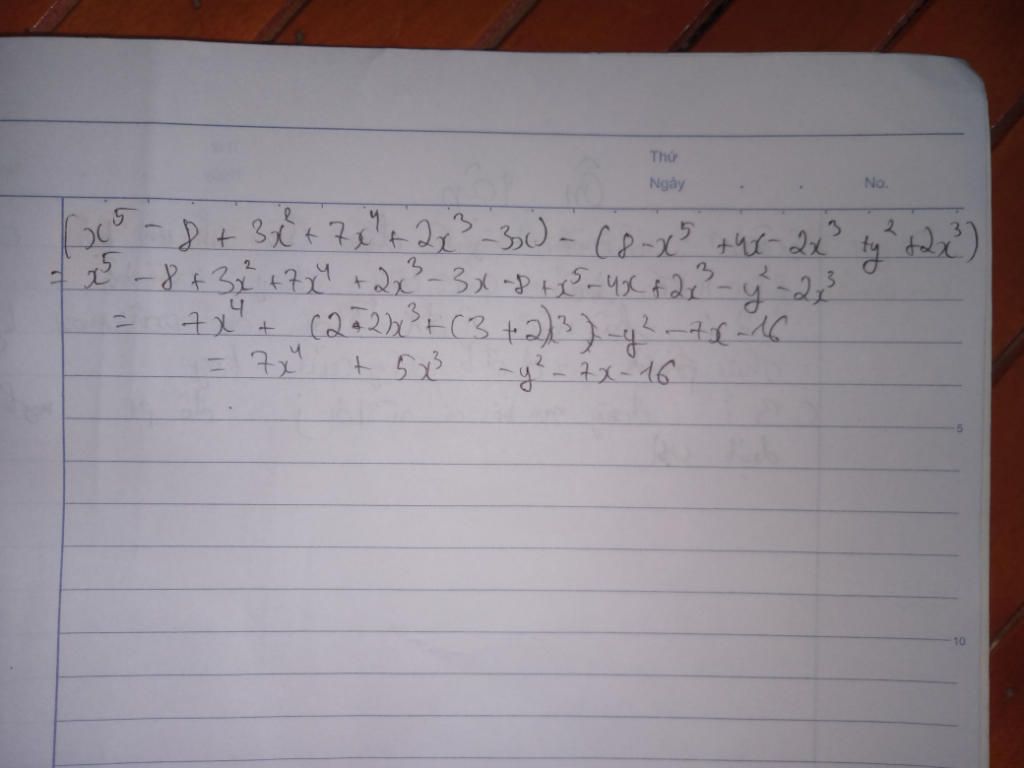 Thứ
Ngày . . No.
(x⁵ - 8 + 3x² + 7x⁴ + 2x³ - 3x) - (8 - x⁵ + 4x - 2x³ + y² + 2x³)
= x⁵ - 8 + 3x² + 7x⁴ + 2x³ - 3x - 8 + x⁵ - 4x + 2x³ - y² - 2x³
= 7x⁴ + (2-2)x³ + (3 + 2)x³) - y² - 7x - 16
= 7x⁴ + 5x³ - y² - 7x - 16
5
10